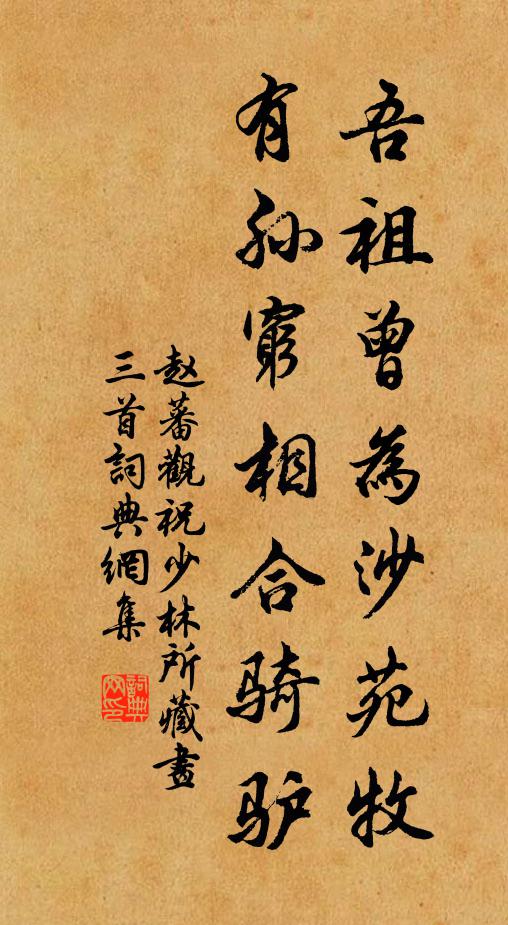 吾祖曾為沙苑牧
有孙窮相合骑驴
赵蕃觀祝少林所藏畫
三首詞典網集
詞典网印